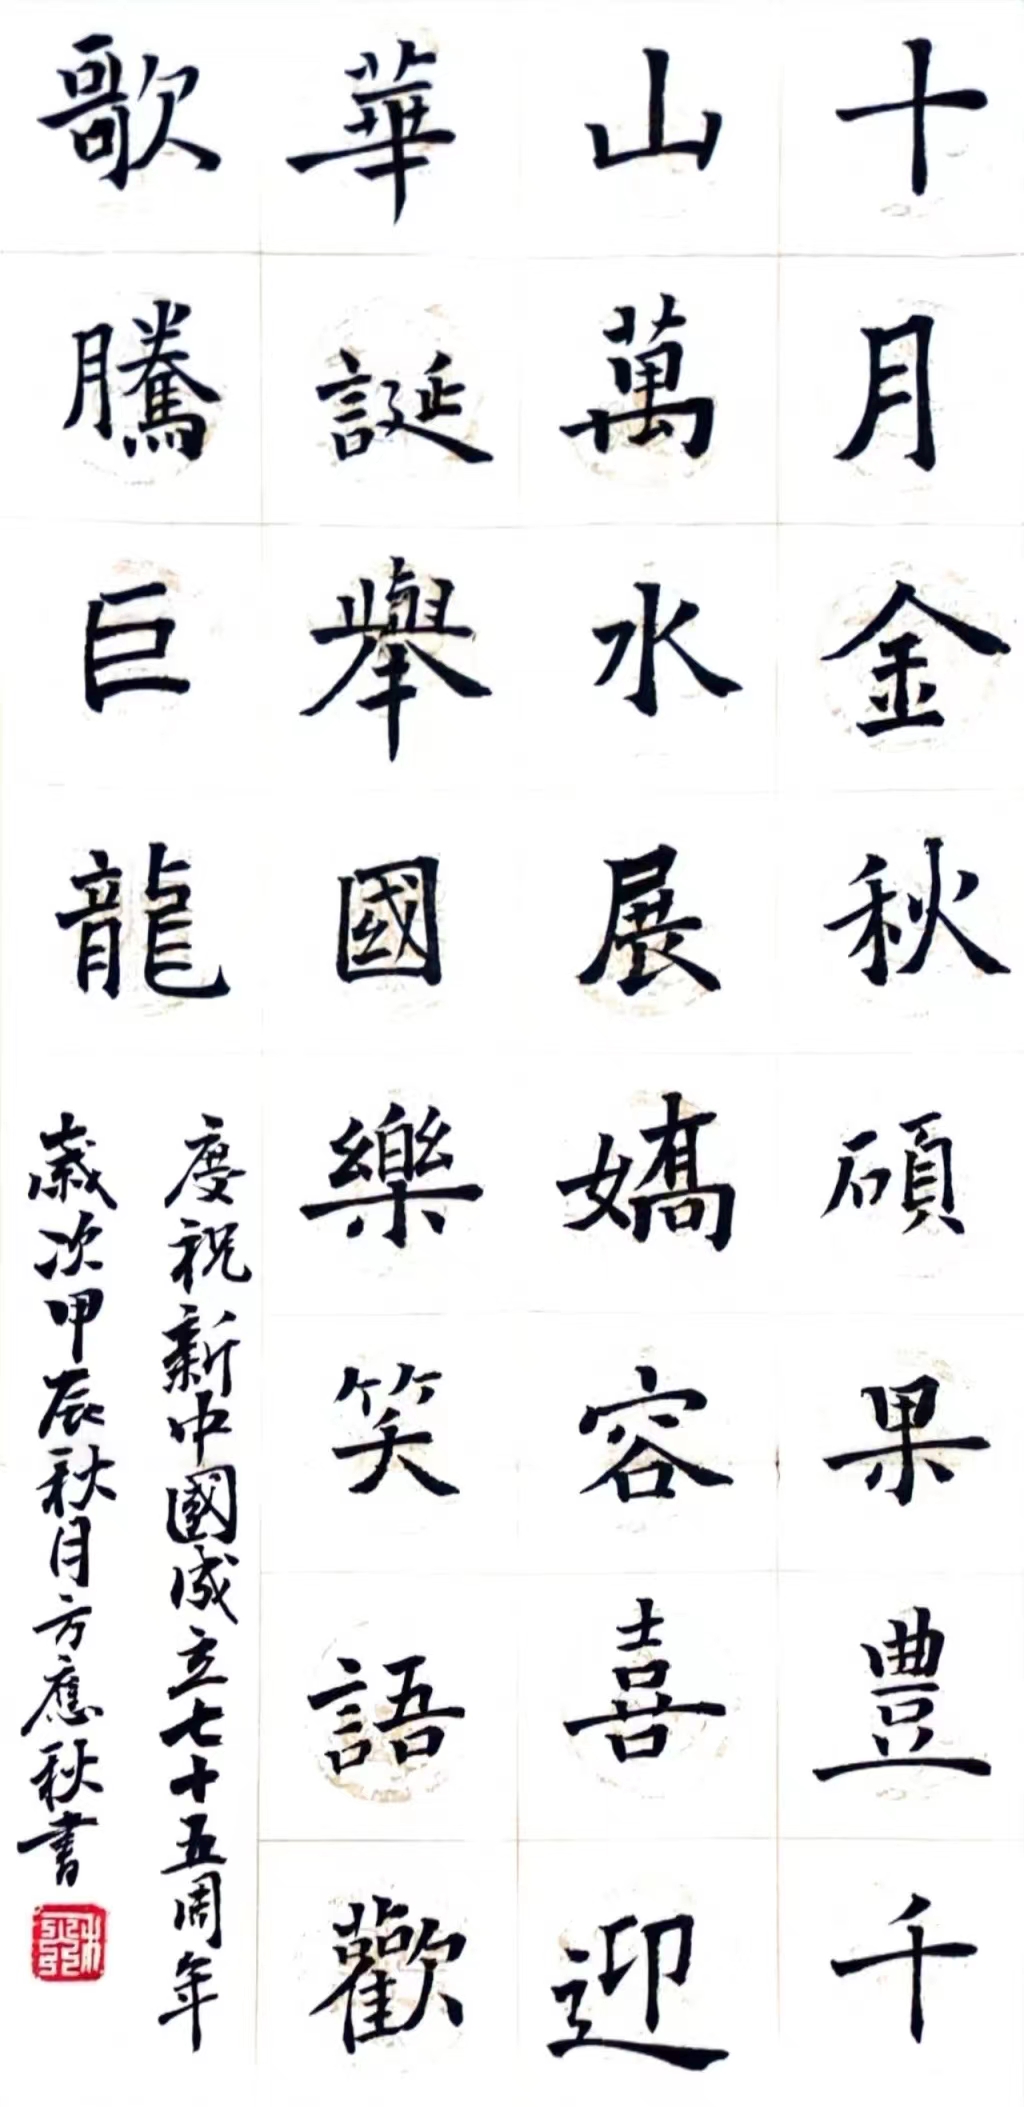 十月金秋碩果豊千
山萬水展嬌容喜迎
華誕舉國樂笑語歡
歌騰巨龍
慶祝新中國成立七十五周年
歲次甲辰秋月方應秋書